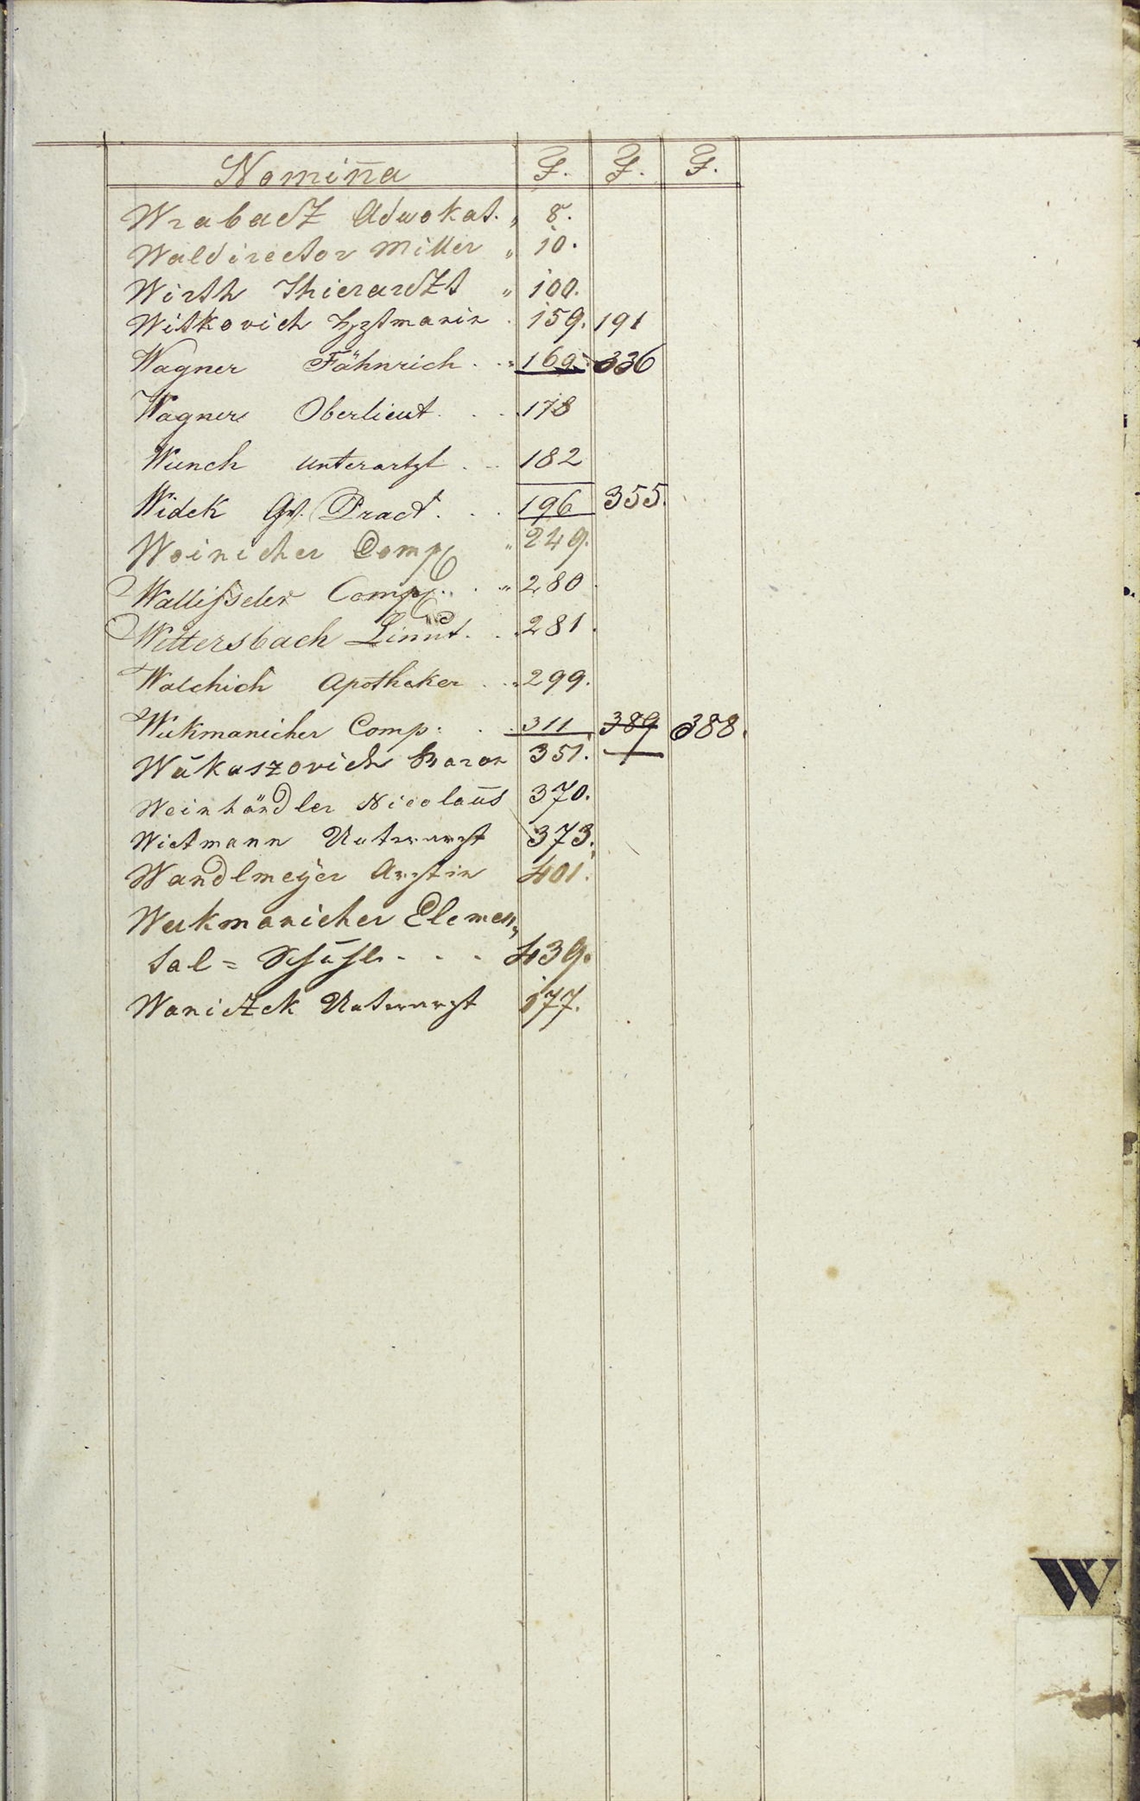 Nomina F. F. F.
Wrabacz Adwokat. „ 8.
Waldirector Miller „ 10.
Wirth Thierarczt „ 100.
Witkovich Hptmanin . 159. 191
Wagner Fähnrich . . „ 169. 336
Wagner Oberlieut. . . 178
Wunch unterartzt . . . 182
Widek Gr. Pract. . . 196 355.
Woinicher Comp „ 249.
Wallißeler Comp. . „ 280
Wettersbach Limit. . . 281.
Walchich Apotheker . . „ 299.
Wukmanicher Comp. . . 311 389 388.
Wukaszovich Baron 351.
Weinhändler Nicolaus 370.
Wictmann Unterarzt 373.
Wandlmeÿer Arztin 401.
Wukmanicher Elemen„
tal= Schule . . . 439.
Waniczek Unterarzt 177.
W